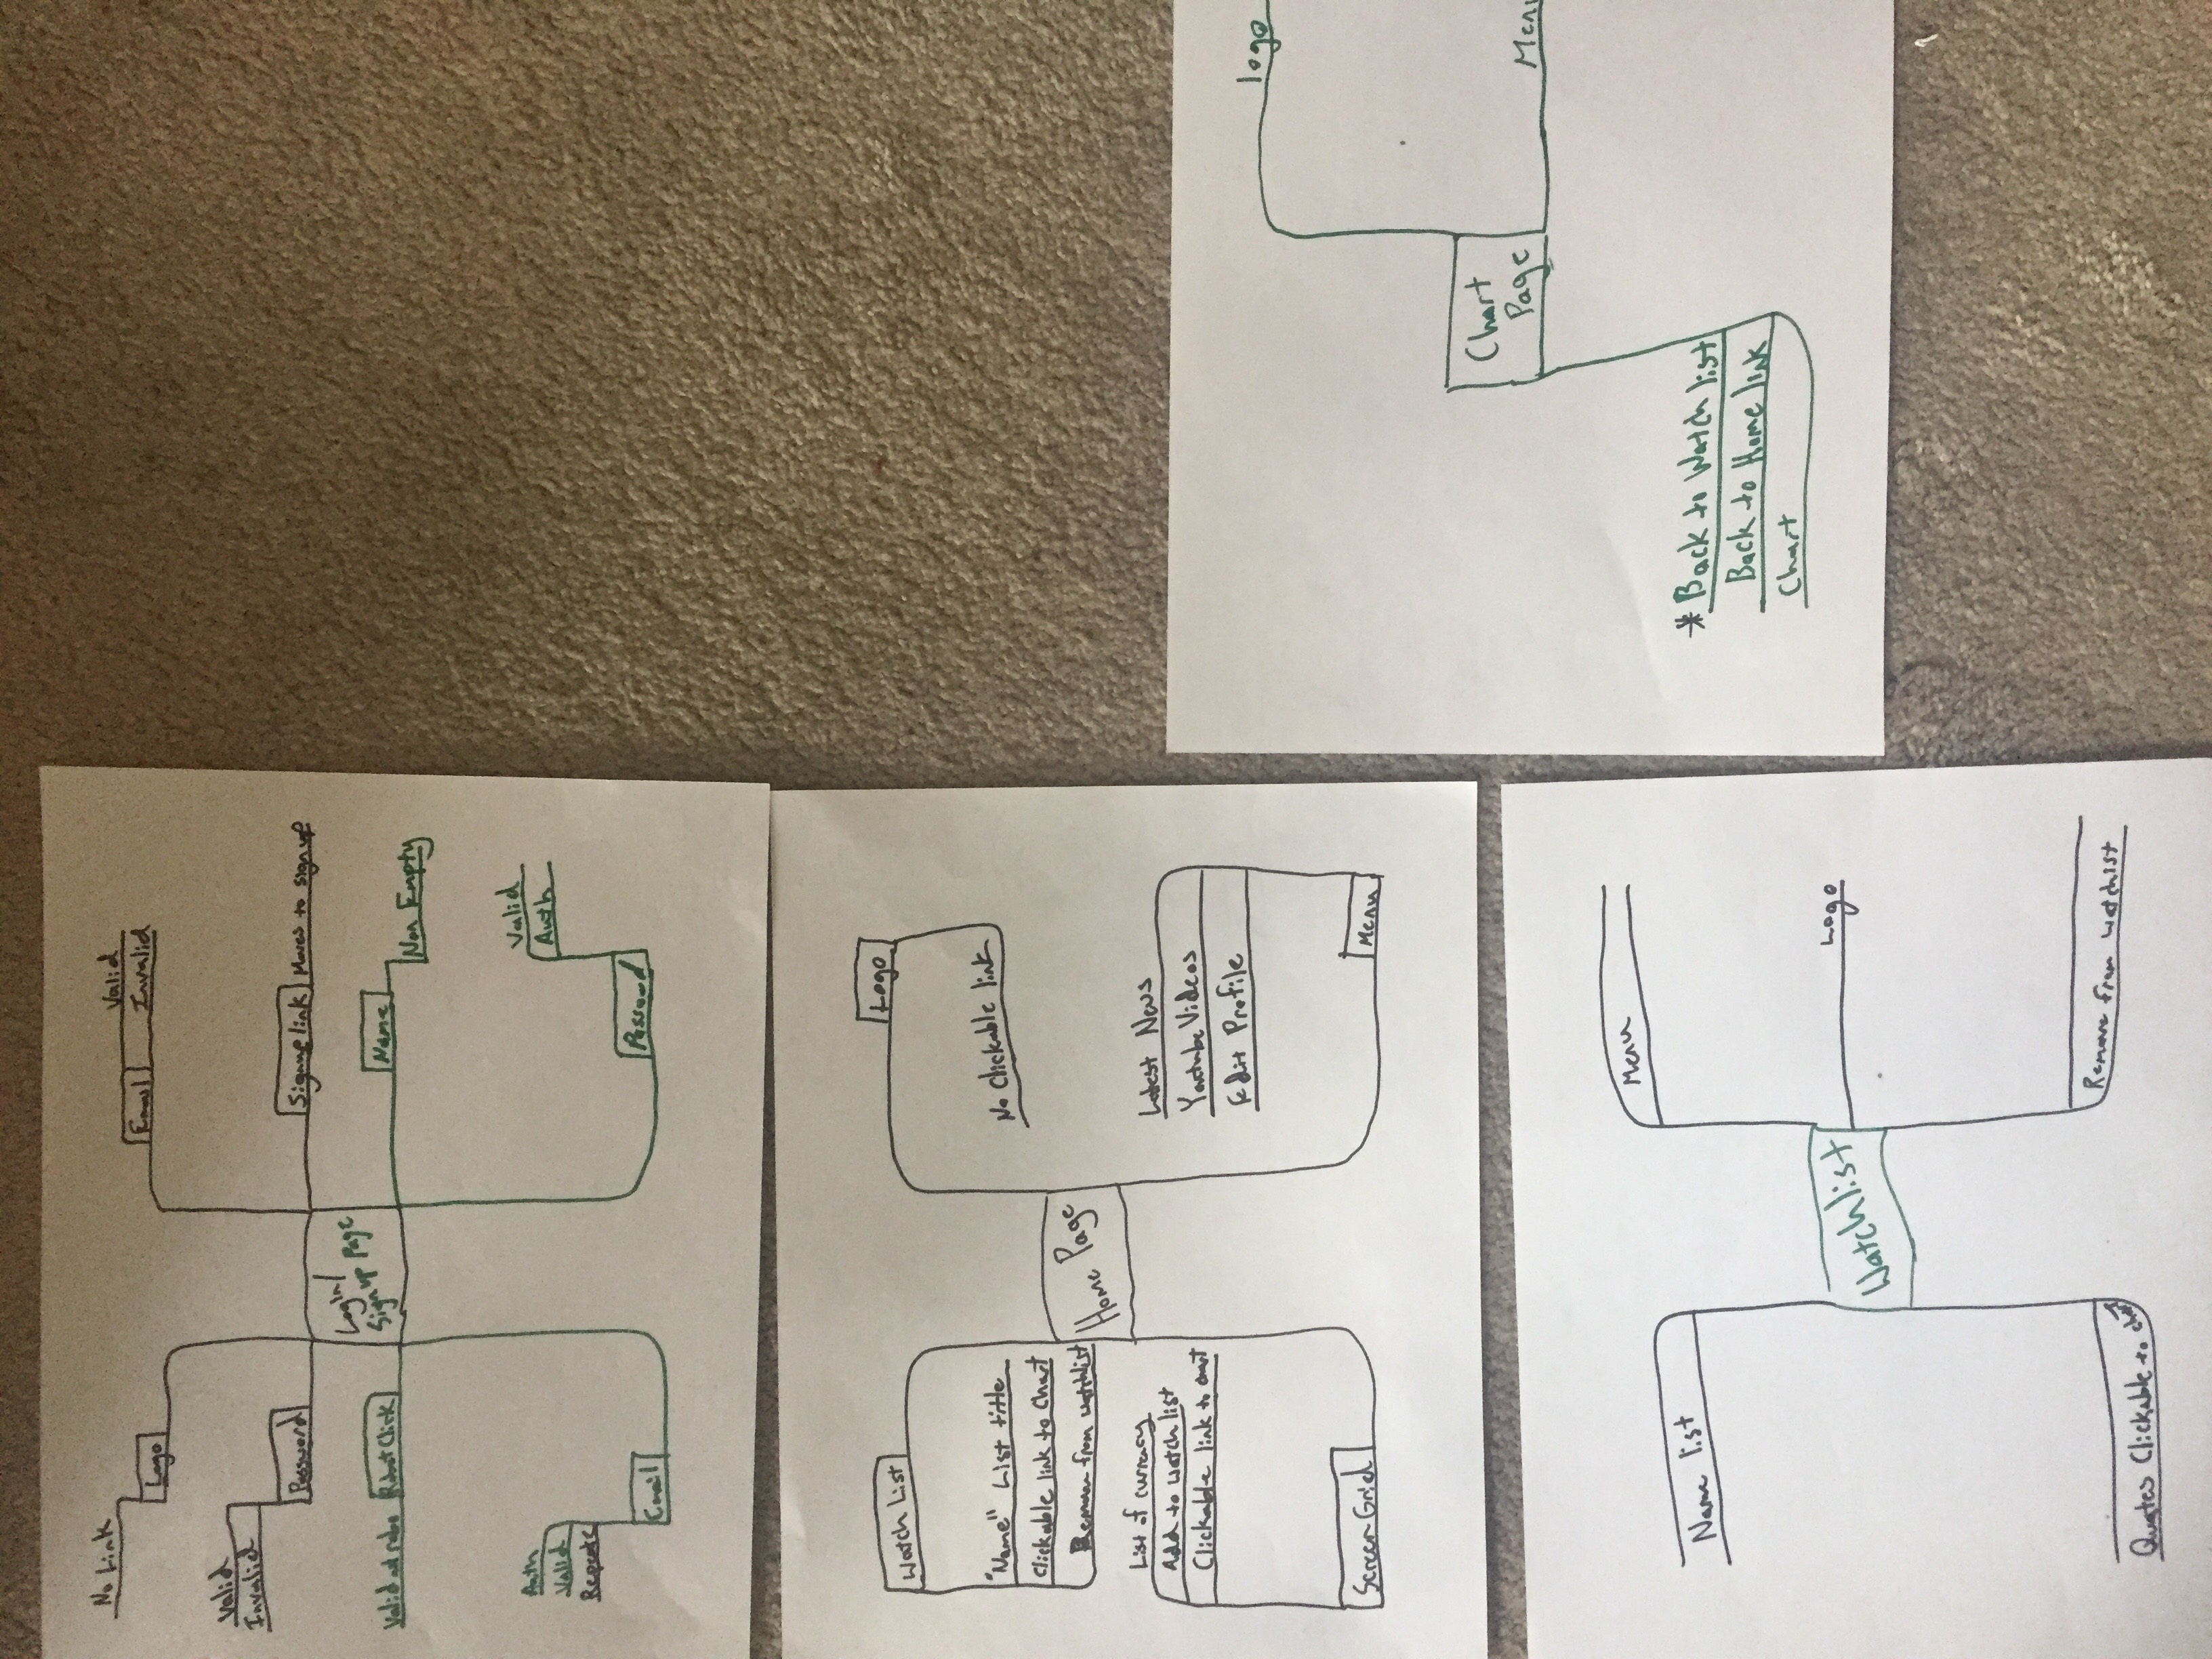 No Link
Logo
Valid
Invalid
Password
Valid not robo
Robot Click
Auth
Valid
Repeate
Email
Login/
Sign up Page
Email
Valid
Invalid
Signup link
Moves to sign up
Name
Non Empty
Valid
Auth
Password
Watch List
"Name" List title
Clickable link to Chart
Remove from watchlist
List of currency
Add to watch list
Clickable link to chart
Screen Grid
Home Page
Logo
No Clickable link
Latest News
Youtube Videos
Edit Profile
Menu
Name list
Quotes Clickable to chart
Watchlist
Menu
Logo
Remove from watchlist
logo
Chart
Page
Menu
* Back to Watch list
Back to Home link
Chart